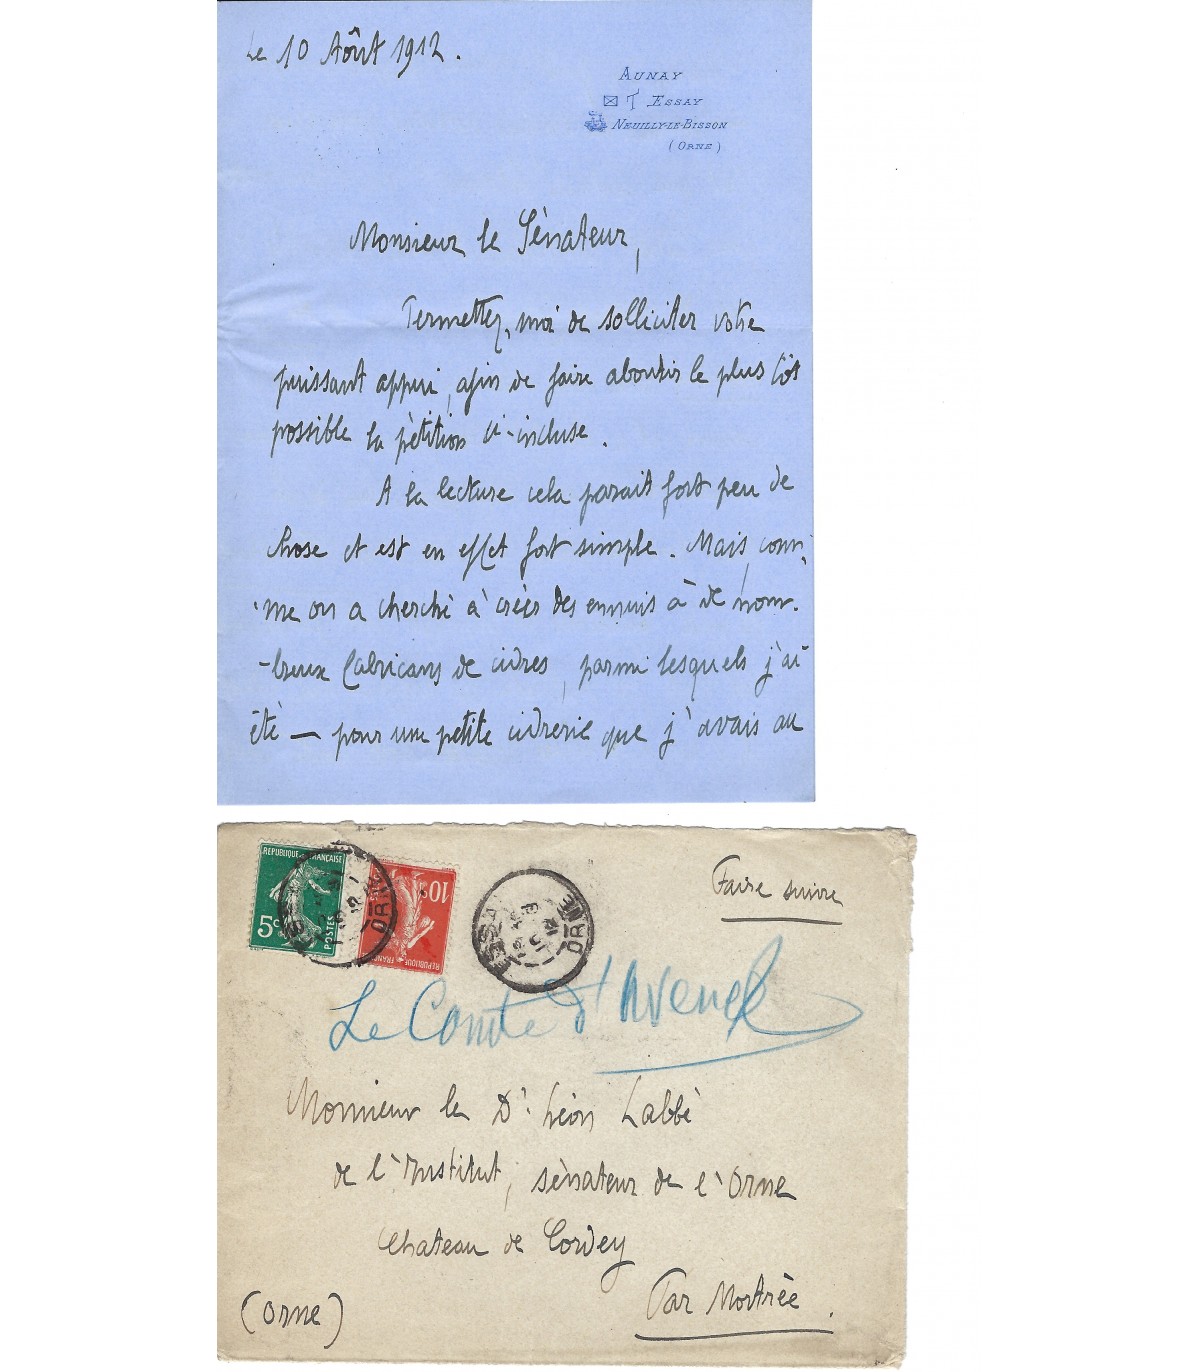 Le 10 Aôut 1912.
AUNAY
T ESSAY
NEUILLY-LE-BISSON
(ORNE)
Monsieur le Sénateur,
Permettez-moi de solliciter votre
puissant appui, afin de faire aboutir le plus tôt
possible la pétition ci-incluse.
A la lecture cela parait fort peu de
chose et est en effet fort simple. Mais com-
-me on a cherché à créer des ennuis à de nom-
-breux fabricans de cidres, parmi lesquels j'ai
été — pour une petite cidrerie que j'avais au
REPUBLIQUE FRANÇAISE
5c
POSTES
10c
REPUBLIQUE FRANC
ORNE
ESSAY
ORNE
Faire suivre
Le Comte d'Avenel
Monsieur le Dr Léon Labbé
de l'Institut, sénateur de l'Orne
Chateau de Cordey
Par Mortrée.
(Orne)